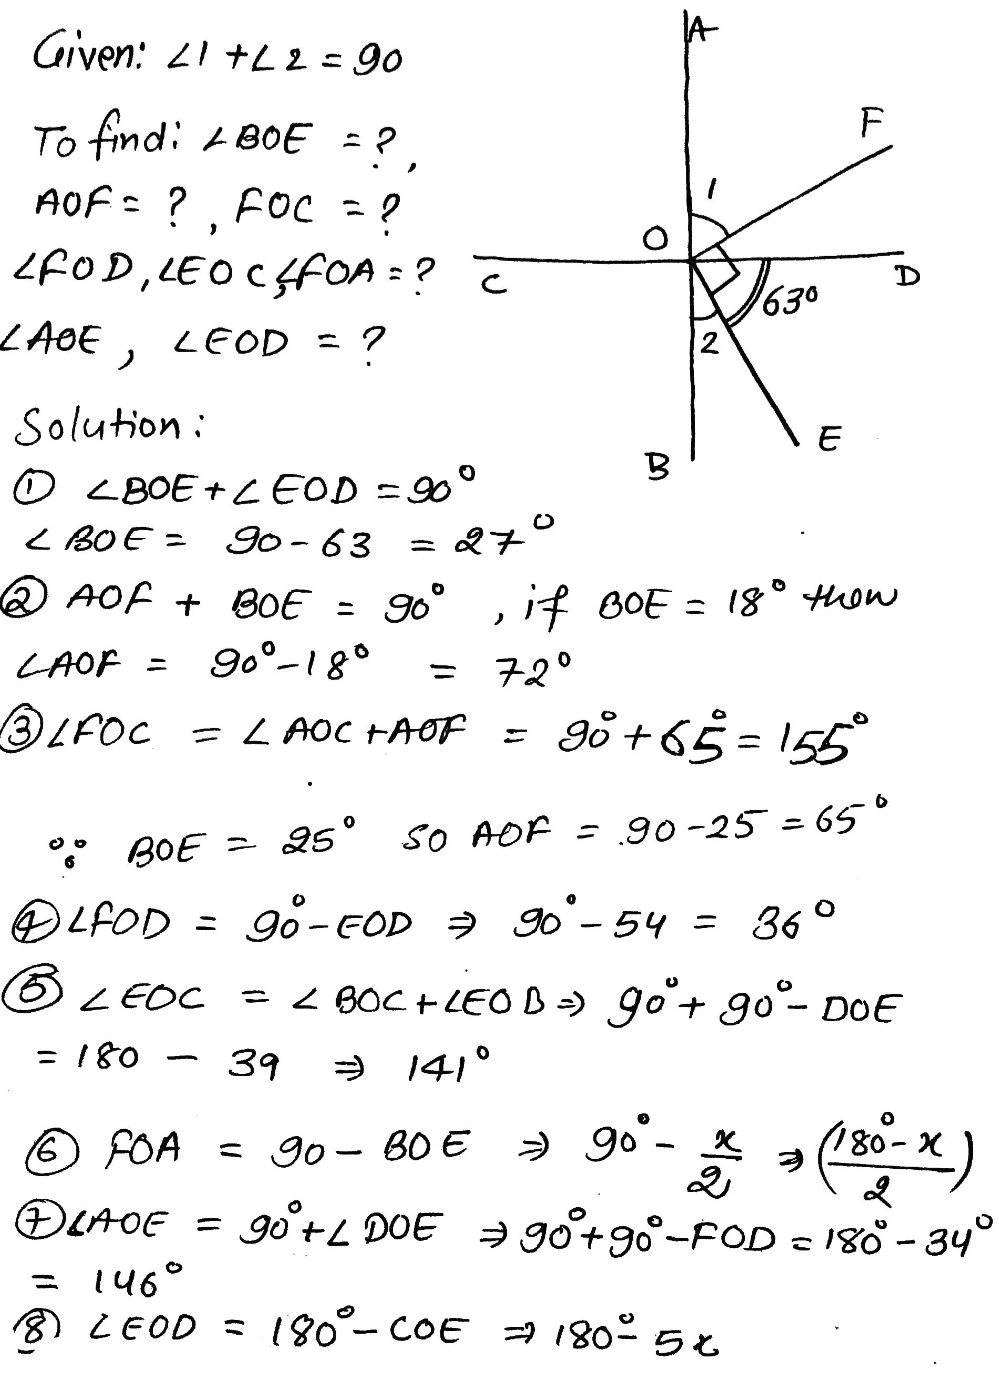 Given: ∠1 + ∠2 = 90
To find: ∠BOE = ?,
AOF = ?, FOC = ?
∠FOD, ∠EOC, ∠FOA = ?
∠AOE, ∠EOD = ?
A
F
1
O
C
D
63°
2
E
B
Solution:
① ∠BOE + ∠EOD = 90°
∠BOE = 90 - 63 = 27°
② AOF + BOE = 90°, if BOE = 18° then
∠AOF = 90° - 18° = 72°
③ ∠FOC = ∠AOC + AOF = 90° + 65° = 155°
∵ BOE = 25° so AOF = 90 - 25 = 65°
④ ∠FOD = 90° - EOD ⇒ 90° - 54 = 36°
⑤ ∠EOC = ∠BOC + ∠EOB ⇒ 90° + 90° - DOE
= 180 - 39 ⇒ 141°
⑥ FOA = 90 - BOE ⇒ 90° - x/2 ⇒ (180° - x / 2)
⑦ ∠AOE = 90° + ∠DOE ⇒ 90° + 90° - FOD = 180° - 34°
= 146°
⑧ ∠EOD = 180° - COE ⇒ 180° - 5x